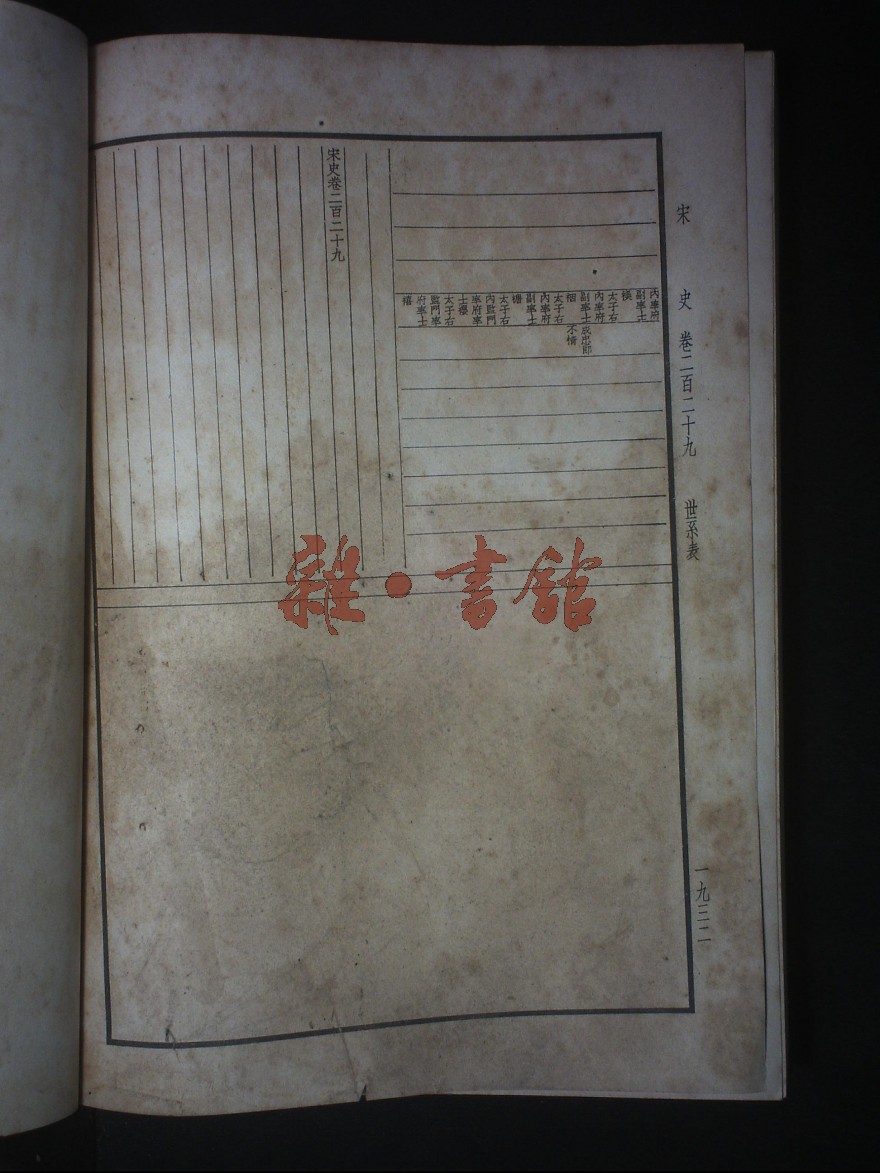 宋 史 卷二百二十九 世系表
一九三二
內率府
副率士
太子右
內率府
副率士
太子右
內率府
副率士
太子右
內監門
率府率
士
太子右
監門率
府率士
成忠郎
不
宋史卷二百二十九
雜·書館